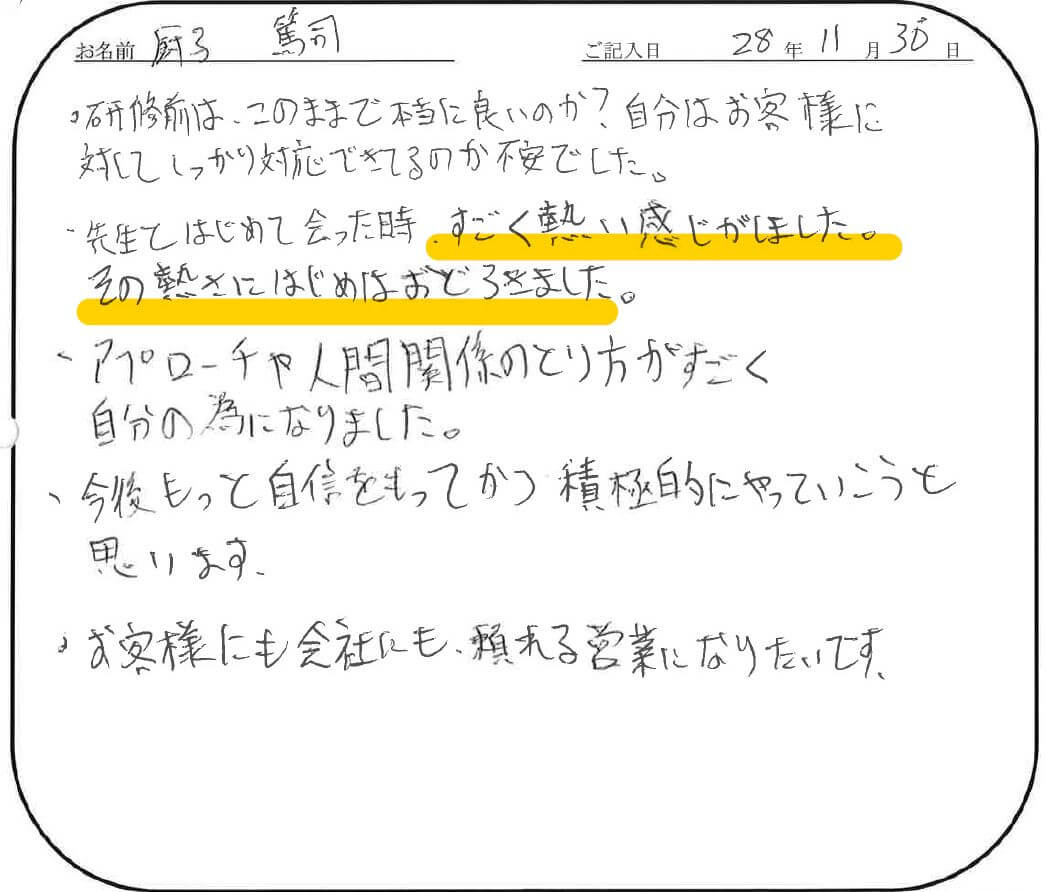 お名前 厨子 篤司 ご記入日 28年11月30日
・研修前は、このままで本当に良いのか?自分はお客様に
対してしっかり対応できてるのか不安でした。
・先生とはじめて会った時、すごく熱い感じがしました。
その熱さにはじめはおどろきました。
・アプローチや人間関係のとり方がすごく
自分の為になりました。
・今後もっと自信をもってかつ積極的にやっていこうと
思います。
・お客様にも会社にも、頼れる営業になりたいです。